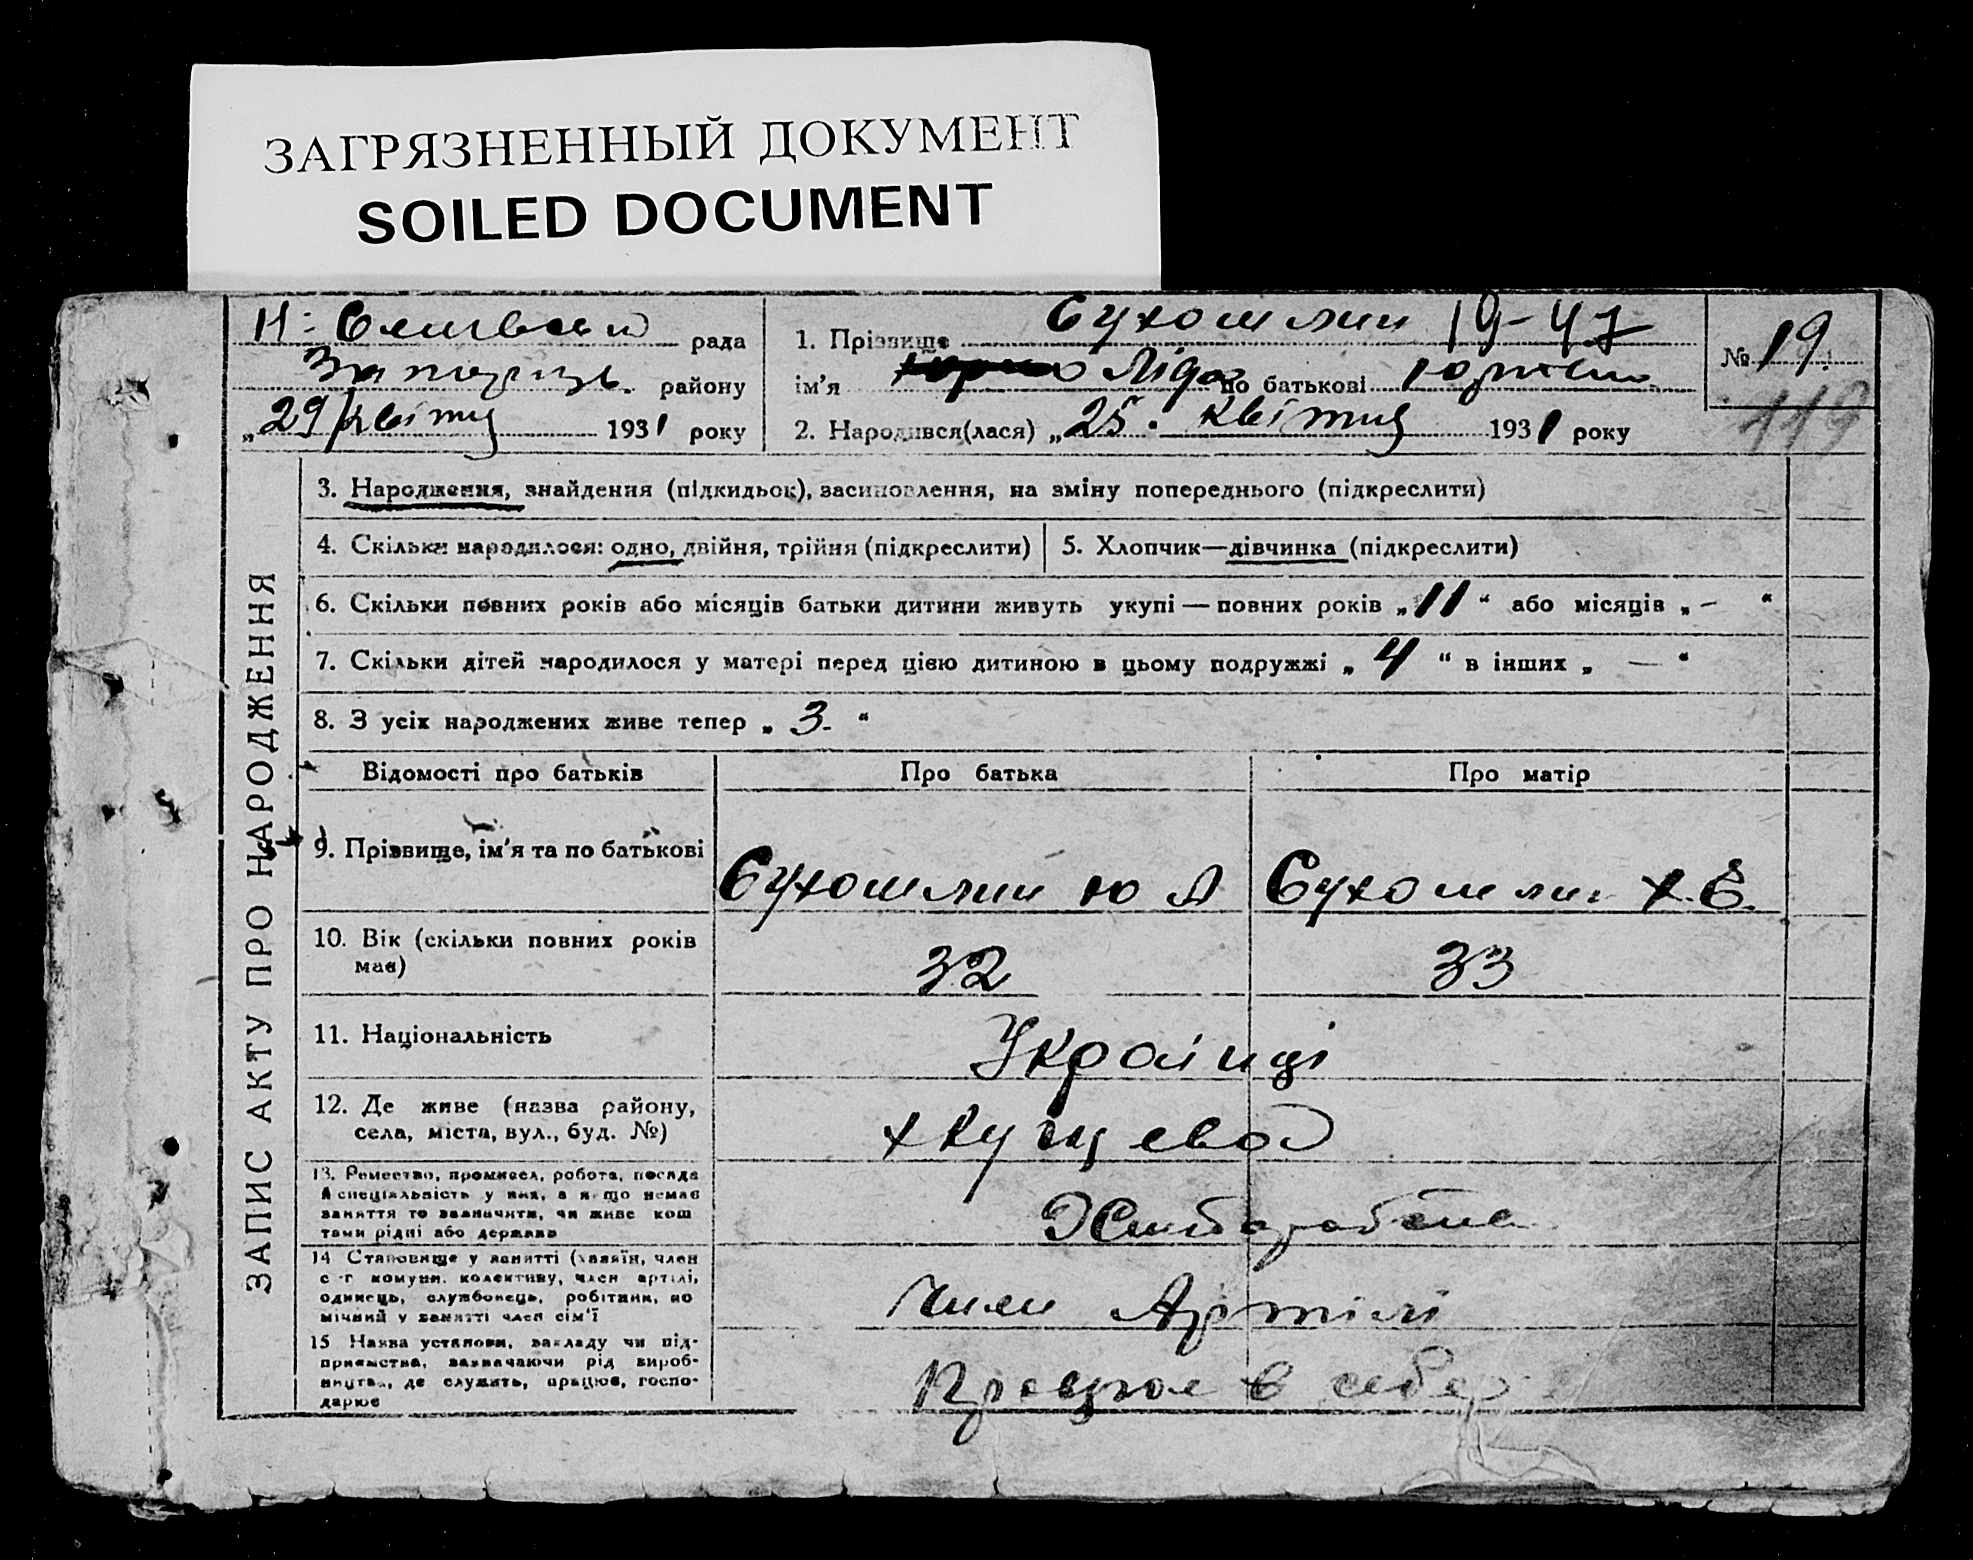 ЗАГРЯЗНЕННЫЙ ДОКУМЕНТ
SOILED DOCUMENT
рада
району
„29 квітня 1931 року
1. Прізвище Сухомлин 19-47
ім'я Ліда по батькові
2. Народився(лася) „25. квітня 1931 року
№ 19
119
ЗАПИС АКТУ ПРО НАРОДЖЕННЯ
3. Народження, знайдення (підкидьок), засиновлення, на зміну попереднього (підкреслити)
4. Скільки народилося: одно, двійня, трійня (підкреслити)
5. Хлопчик—дівчинка (підкреслити)
6. Скільки повних років або місяців батьки дитини живуть укупі — повних років „11“ або місяців „-“
7. Скільки дітей народилося у матері перед цією дитиною в цьому подружжі „4“ в інших „—“
8. З усіх народжених живе тепер „3.“
Відомості про батьків
Про батька
Про матір
9. Прізвище, ім'я та по батькові
Сухомлин Ю А
Сухомлин Х. Є.
10. Вік (скільки повних років
має)
32
33
11. Національність
Українці
12. Де живе (назва району,
села, міста, вул., буд. №)
13. Ремество, промисел, робота, посада
й спеціяльність у них, а якщо немає
заняття то зазначити, чи живе кош
тами рідні або держави
14 Становище у занятті (хазяїн, член
с -г комуни, колективу, член артілі,
одинець, службовець, робітник, по
мічний у занятті член сім'ї
Член Артілі
15 Назва установи, закладу чи під-
приємства, зазначаючи рід вироб-
ництва, де служить, працює, госпо-
дарює
в себе